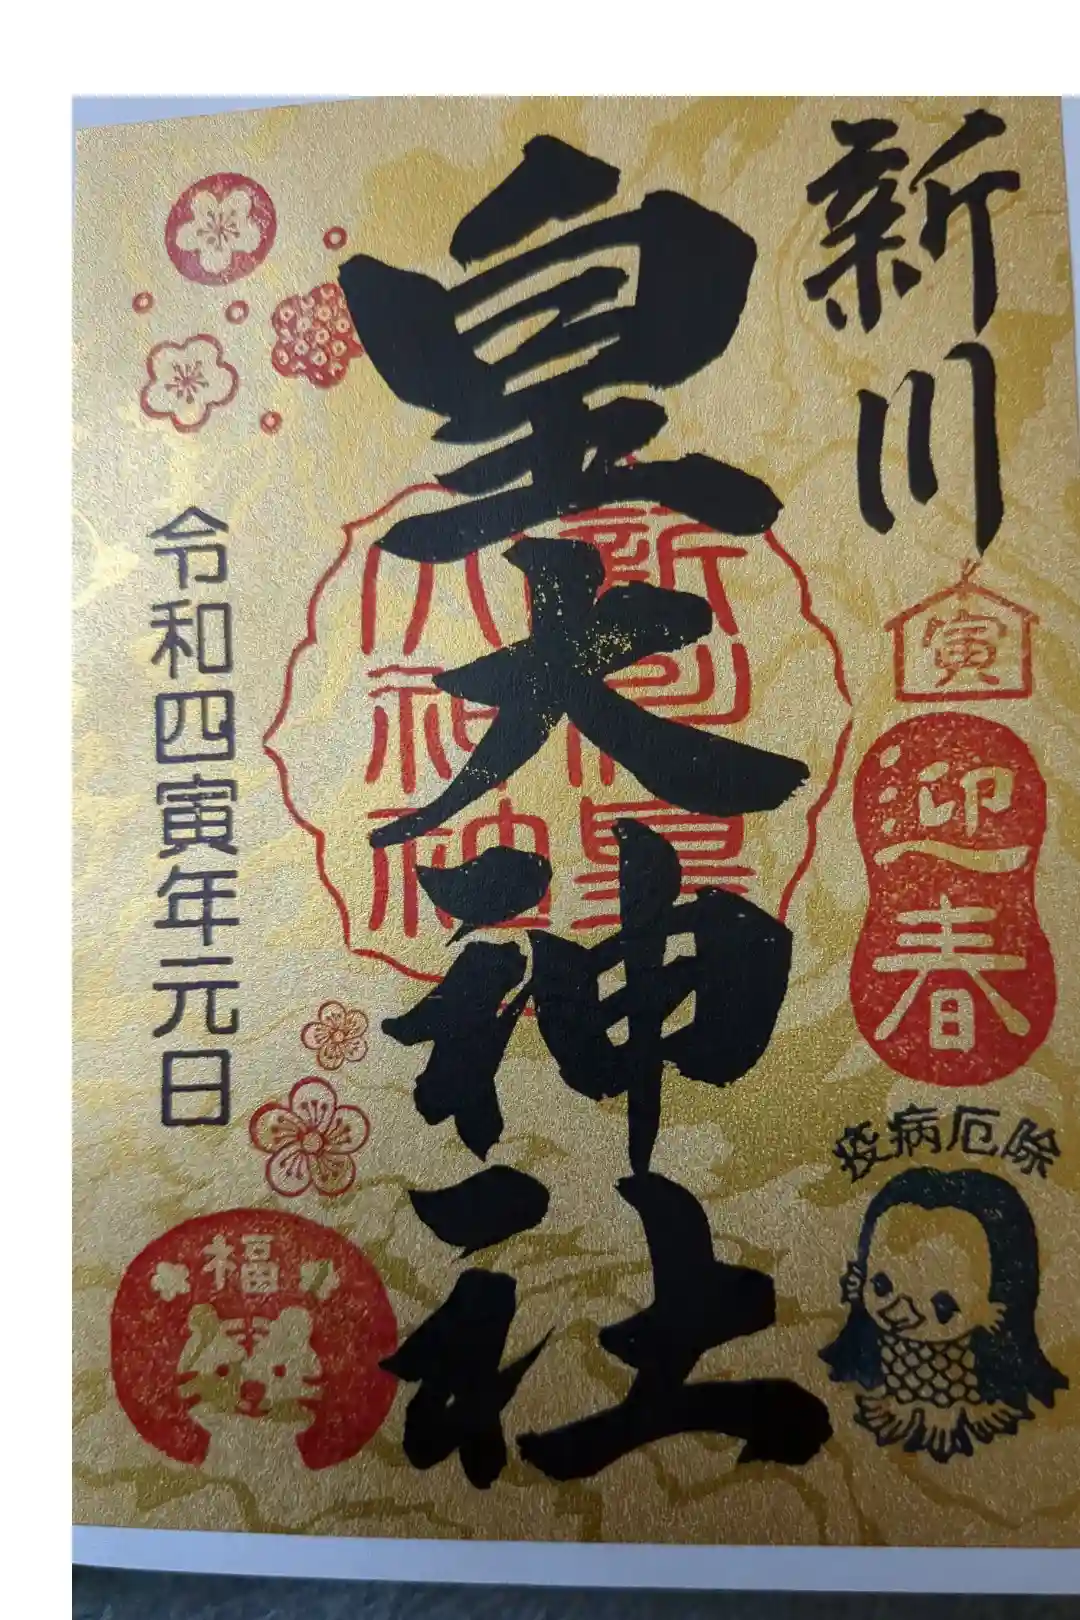 新川
寅
迎春
疫病厄除
皇大神社
新川皇大神社
令和四寅年元日
福